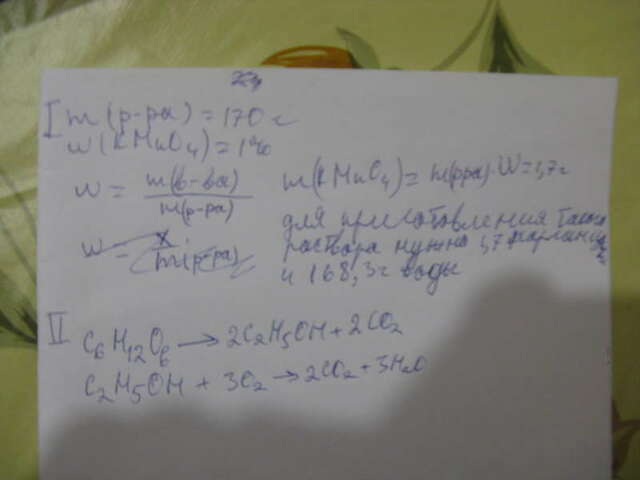 I m(р-ра) = 170 г
w(KMnO4) = 1%
w = m(в-ва) / m(р-ра)
m(KMnO4) = m(рра)·W = 1,7 г
для приготовления такого
раствора нужно 1,7
и 168,3 г воды
w = x / m(р-ра)
II C6H12O6 → 2C2H5OH + 2CO2
C2H5OH + 3O2 → 2CO2 + 3H2O